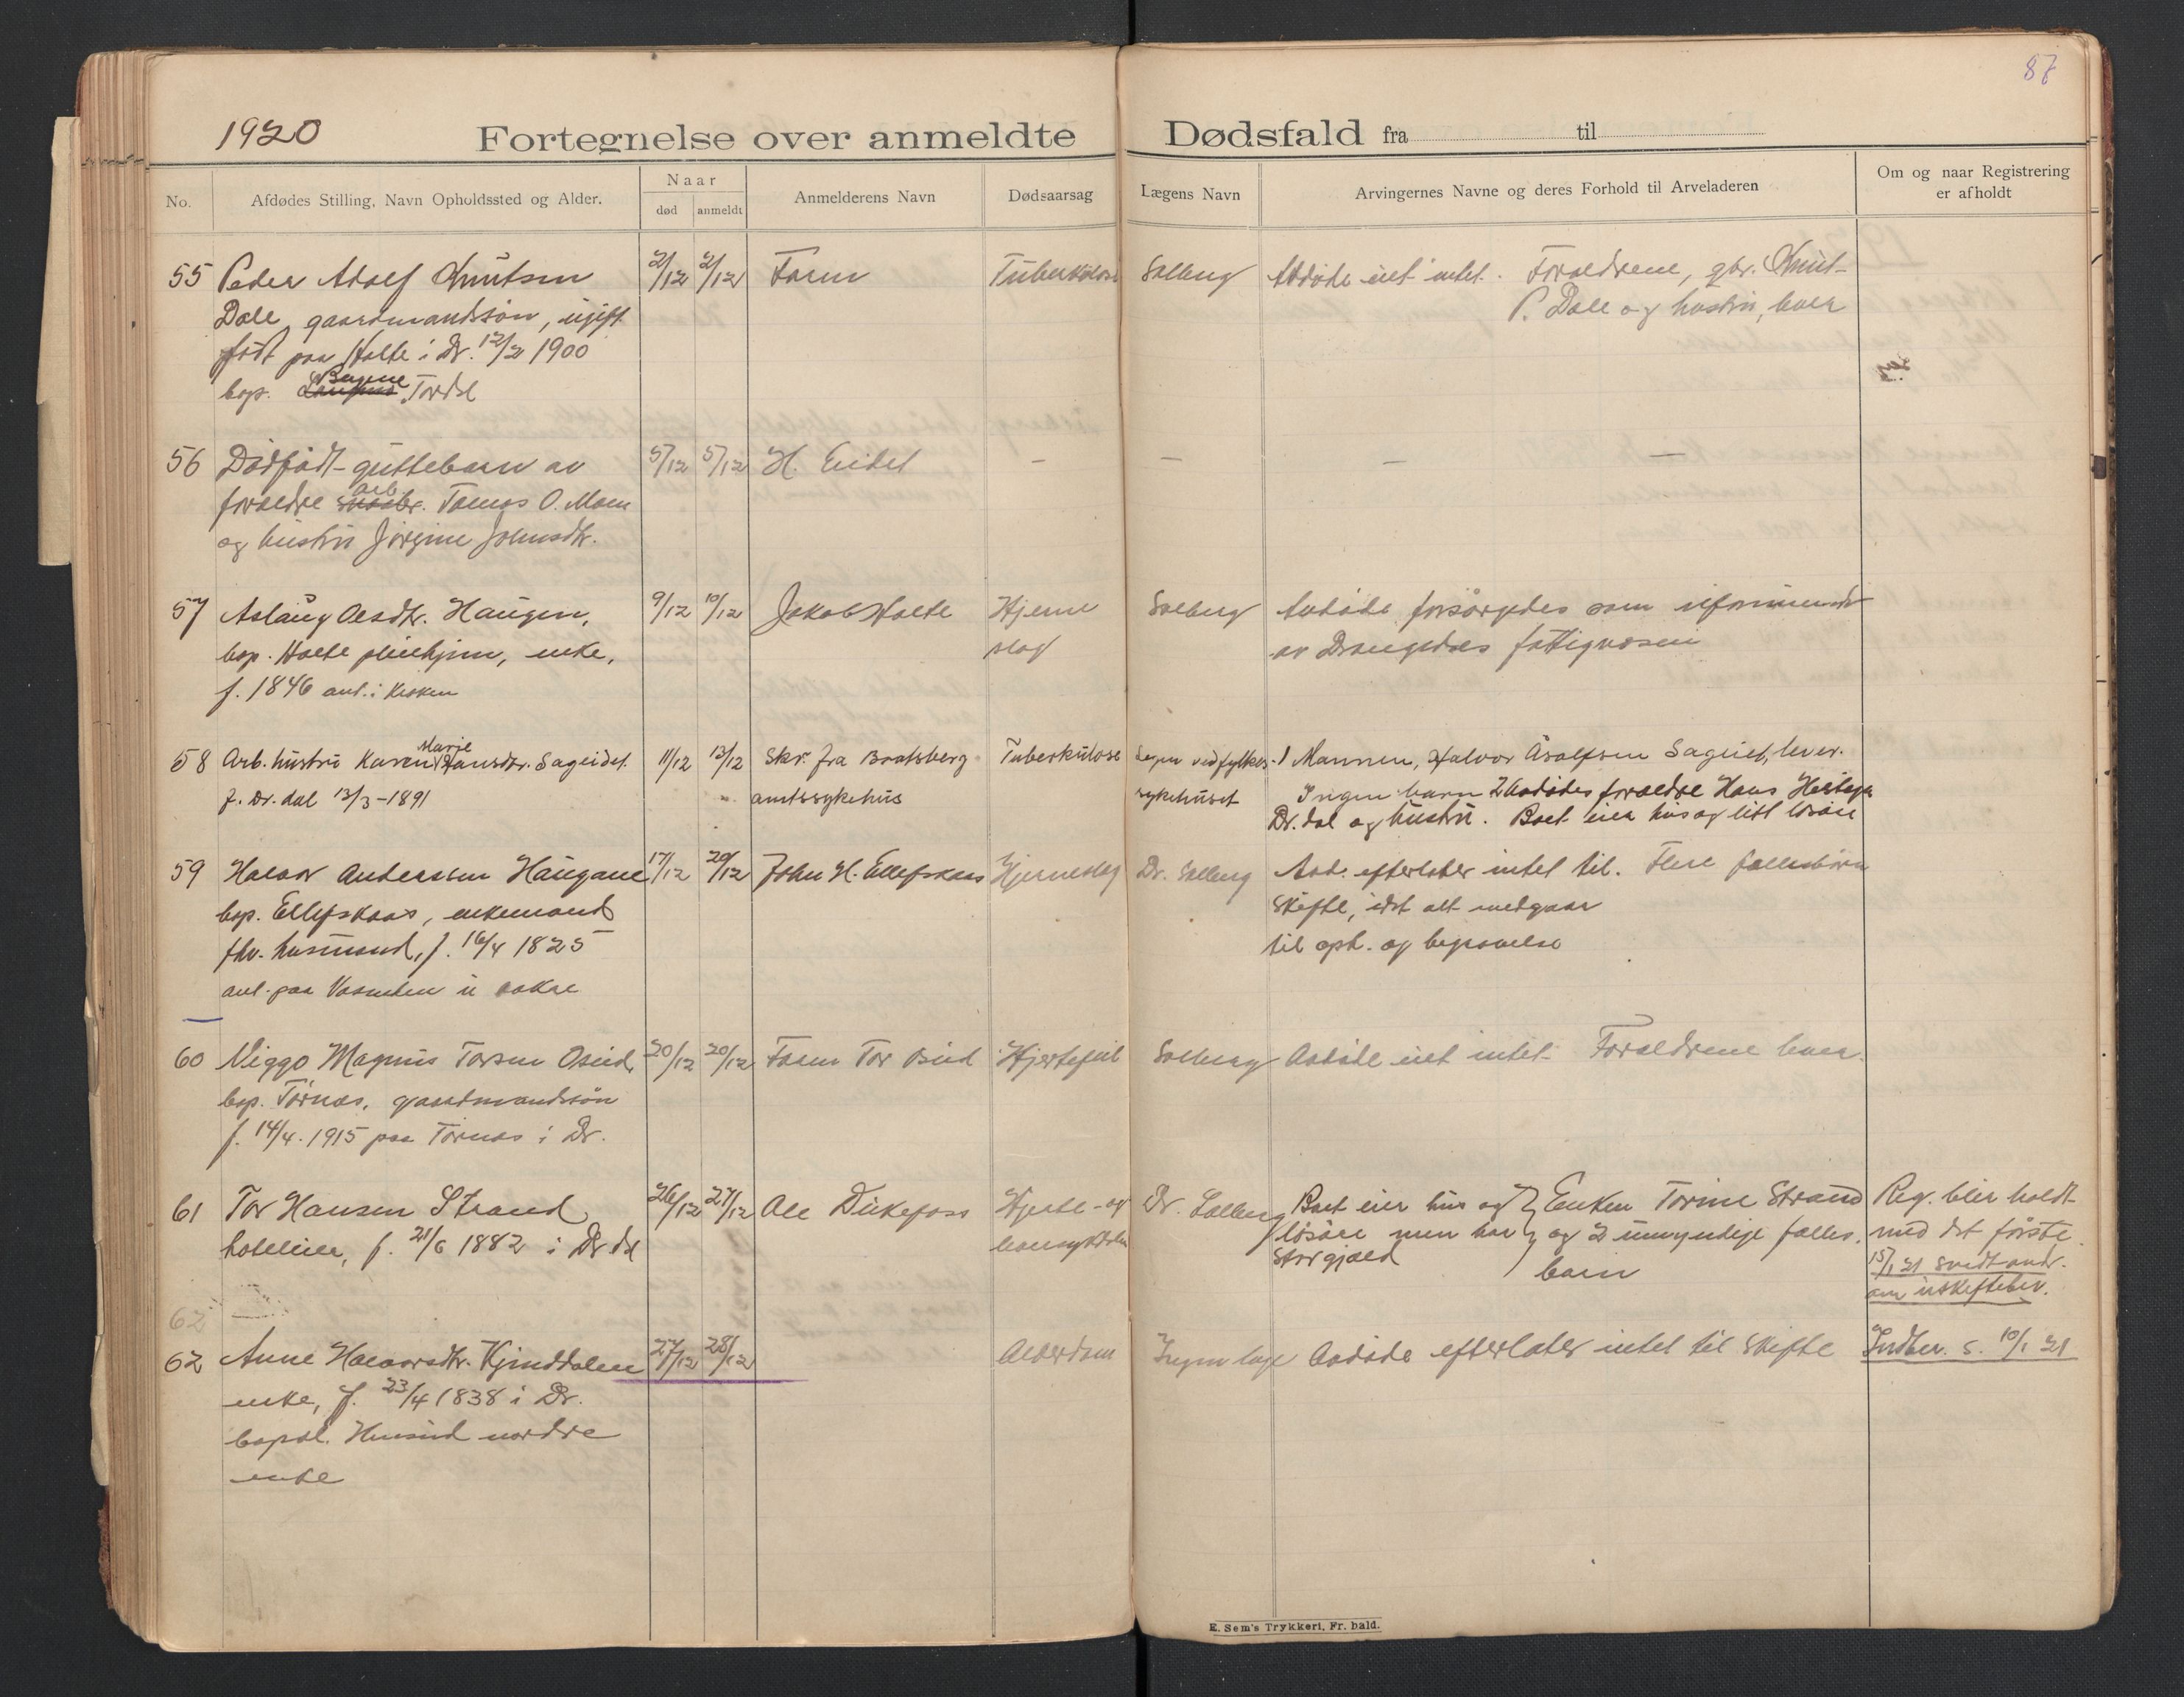 87
1920
Fortegnelse over anmeldte Dødsfald fra til
No.
Afdødes Stilling, Navn Opholdssted og Alder.
Naar
død
anmeldt
Anmelderens Navn
Dødsaarsag
Lægens Navn
Arvingernes Navne og deres Forhold til Arveladeren
Om og naar Registrering
er afholdt
55 Peder Adolf Knutsen
Dale, gaardmandssøn, ugift
født paa Holte i Dr. 12/2 1900
bop. Tordal
2/12 2/12
Faren
Tuberkulose
Solberg
Avdøde eiet intet. Foræeldrene, gbr. Knut
P. Dale og hustru, lever
56 Dødfødt guttebarn av
foraeldre arb. Tomas O. Moen
og hustru Jørgine Johnsdtr.
5/12 5/12
H. Eidet
–
–
– –
57 Aslaug Olsdtr. Haugen,
bop. Holte pleiehjem, enke,
f. 1846 ant. i
9/12 10/12
Jakob Holte
Hjerne
slag
Solberg
Avdøde forsørgedes som uformuende
av Drangedals fattigvæsen
58 Arb. hustru Karen Marie Hansdtr. Sageidet.
f. Dr.dal 13/3-1891
11/12 13/12
Skr. fra Bratsberg
amtssykehus
Tuberkulose
Lægen ved fylkes-
sykehuset
1 Mannen, Halvor Åsolfsen Sageiet, lever.
Ingen barn 2 Avdødes foraeldre Hans
Dr.dal og hustru. Boet eier hus og litt løsøre
59 Halvor Anderssen Haugane
bop. Ellefskaas, enkemand
fhv. husmand, f. 16/4 1825
ant. paa
17/12 20/12
John H. Ellefskaas
Hjerneslag
Dr. Solberg
Avd. efterlater intet til. Flere fællesbørn
Skifte, idet alt medgaar
til oph. og begravelse
60 Viggo Magnus Torsen Oseid,
bop. Tørnes, gaardmandssøn
f. 14/4. 1915 paa Tørnes i Dr.
20/12 20/12
Faren Tor Oseid
Hjertefeil
Solberg
Avdøde eiet intet. Foraeldrene lever.
61 Tor Hansen Strand
hoteleier, f. 21/6 1882 i Dr.dal
26/12 27/12
Ole Dükefoss
Hjerte- og
Dr. Solberg
Boet eier hus og
løsøre men har
stor gjæld
Enken Torine Strand
og 2 umyndige fælles
barn
Reg. blir holdt
med det første.
15/1 21 sendt andr.
om uskiftebev.
62
62 Anne Halvorsdtr. Kjinddalen
enke, f. 23/4 1838 i Dr.
bopæl. nordre
enke
27/12 28/12
Alderdom
Ingen læge
Avdøde efterlater intet til Skifte
Indber. s. 10/1 21
E. Sem's Trykkeri, Fr. hald.